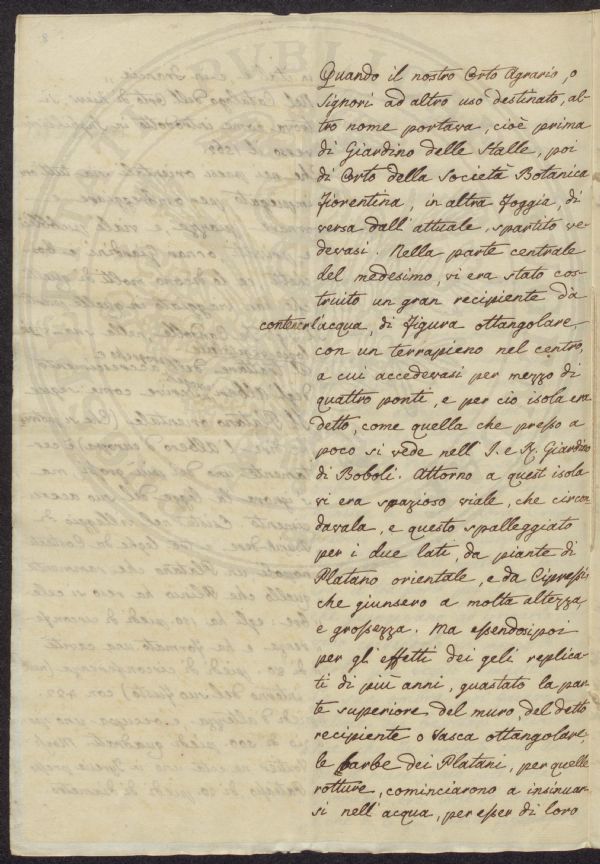 Quando il nostro Orto Agrario, o
Signori ad altro uso destinato, al-
tro nome portava, cioè prima
di Giardino delle Stalle, poi
di Orto della Società Botanica
Fiorentina, in altra foggia, di
versa dall'attuale, spartito ve-
devasi. Nella parte centrale
del medesimo, vi era stato cos-
truito un gran recipiente da
contener l'acqua, di figura ottangolare,
con un terrapieno nel centro,
a cui accedevasi per mezzo di
quattro ponti, e per ciò isola era
detto, come quella che presso a
poco si vede nell'I. e R. Giardino
di Boboli. Attorno a quest'isola
vi era spazioso viale, che circon
davala, e questo spalleggiato
per i due lati, da piante di
Platano orientale, e da Cipressi,
che giunsero a molta altezza,
e grossezza. Ma essendosi poi
per gli effetti dei geli replica-
ti di più anni, guastato la par-
te superiore del muro, del detto
recipiente o vasca ottangolare,
le barbe dei Platani, per quelle
rotture, cominciarono a insinuar-
si nell'acqua, per esser di loro